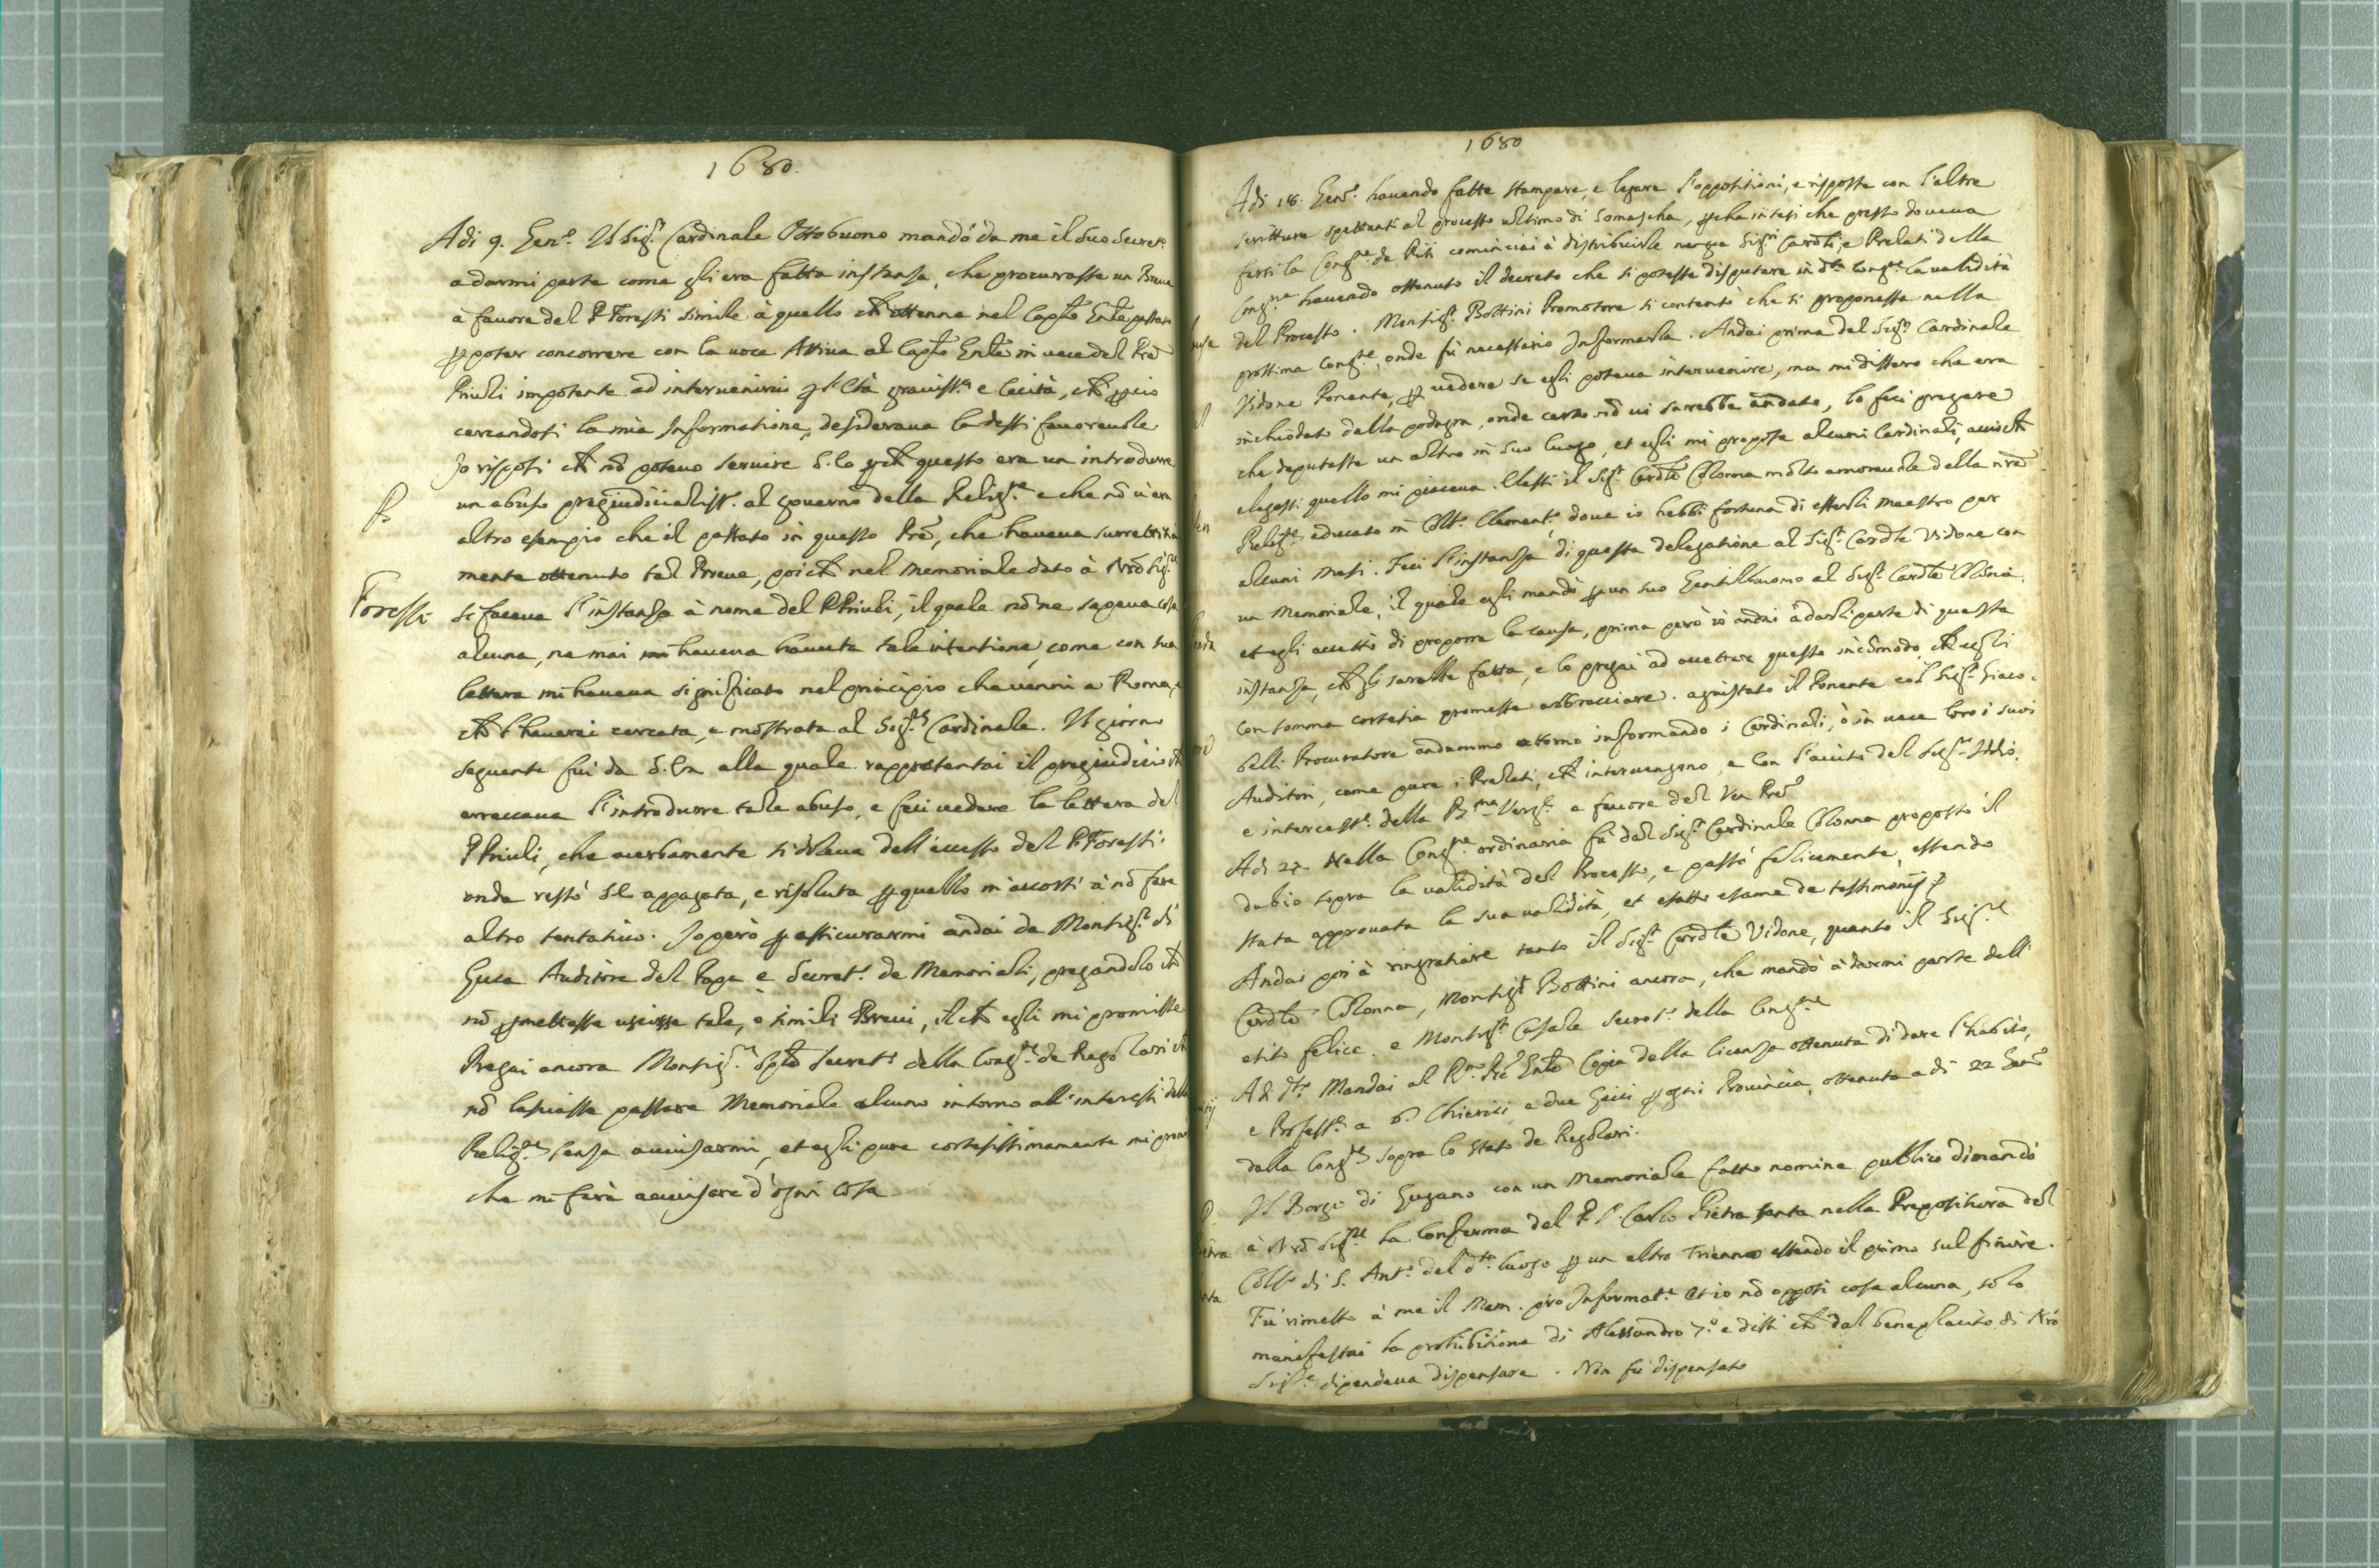 1680.
Adi 9. Gen.o Il Sig.r Cardinale Ottobuono mandò da me il suo Secret.o
a darmi parte come gli era fatta instanza, che procurasse un Breue
a fauore del P. Foresti simile à quello ch'ottenne nel Cap.lo Gn'le passato
per poter concorrere con la uoce Attiua al Cap.lo Gn'le in uece del Prē
Priuli impotente ad interuenirui p l'età grauiss.a e cecità, ch̄ perciò
cercandosi la mia Informatione, desideraua la dessi fauoreuole
Io risposi ch̄ nō poteuo seruire S. Ea p ch̄ questo era un introdurre
un abuso pregiudicialiss.o al gouerno della Relig.ne e che nō u'era
altro esempio che il passato in questo Prē, che haueua surrettitia
mente ottenuto tal Breue, poi ch̄ nel memoriale dato à Nrō Sig.re
si faceua l'instanza à nome del P. Priuli, il quale nō ne sapeua cosa
alcuna, ne mai haueua hauuta tale intentione, come con sua
lettera mi haueua significato nel principio che uenni a Roma, e
ch̄ l'hauerei cercata, e mostrata al Sig.r Cardinale. Il giorno
seguente fui da S. Ea alla quale rappresentai il pregiudicio ch̄
arrecaua l'introdurre tale abuso, e feci uedere la lettera del
P. Priuli, che acerbamente si doleua dell'eccesso del P. Foresti.
onde restò S.E. appagata, e risoluta per quello m'accorsi à nō fare
altro tentatiuo. Io però per assicurarmi andai da Monsig.r di
Luca Auditore del Papa e Secret.o de Memoriali, pregandolo ch̄
nō permettesse uscisse tale, ò simili Breui, il ch̄ egli mi promisse
Pregai ancora Monsig.r Secret.o della Cong.ne de Regolari ch̄
nō lasciasse passare Memoriale alcuno intorno all'interessi della
Relig.ne senza auuisarmi, et egli pure cortesissimamente mi promise
che mi farà auuisare d'ogni cosa
P.
Foresti
1680
Adi 18. Gen.o hauendo fatte stampare, e legare l'oppositioni, e risposte con l'altre
scritture spettanti al processo ultimo di Somascha, perche intesi che presto doueua
farsi la Cong.ne de Riti cominciai à distribuirle Sig.ri Card.li, e Prelati della
Cong.ne hauendo ottenuto il decreto che si potesse disputare in d.ta Cong.ne la ualidità
del Processo. Monsig.r Bottini Promotore si contentò che si proponesse nella
prossima Cong.ne, onde fù necessario Informarla. Andai prima dal Sig.r Cardinale
Vidone Ponente, per uedere se egli poteua interuenire, ma mi dissero che era
inchiodato dalla podagra, onde certo nō ui sarrebbe andato, lo feci pregare
che deputasse un altro in suo luogo, et egli mi propose alcuni Cardinali, acciò ch̄
elegessi quello mi piaceua. Elessi il Sig.r Card.le Colonna molto amoreuole della nrā
Relig.ne educato in Coll.o Clement.o doue io hebbi fortuna di esserli Maestro per
alcuni mesi. Feci l'instanza di questa delegatione al Sig.r Card.le Vidone con
un Memoriale, il quale egli mandò per un suo Gentilhuomo al Sig.r Card.le Colonna,
et egli accettò di proporre la causa, prima però io andai à darli parte di questa
instanza, ch̄ gli sarebbe fatta, e lo pregai ad accettare questo incōmodo, ch̄ egli
con somma cortesia promesse abbracciare. aquistato il Ponente col Sig.r Giaco.
belli Procuratore andammo attorno informando i Cardinali, ò in uece loro i suoi
Auditori, come pure i Prelati, ch̄ interuengono, e con l'aiuto del Sig.r Iddio,
e intercess.e della B.ma Verg.e a fauore del Ven Prē
Adi 27. Nella Cong.ne ordinaria fù dal Sig.r Cardinale Colonna proposto il
dubio sopra la ualidità del Processo, e passò felicemente, essendo
stata approuata la sua ualidità, et esatto esame de testimonij
Andai poi à ringratiare tanto il Sig.r Card.le Vidone, quanto il Sig.re
Card.le Colonna, Monsig.r Bottini ancora, che mandò à darmi parte dell'
esito felice. e Monsig.r Casale Secret.o della Cong.ne
Adi d.to Mandai al R.mo Prē Gn'le Copia della licenza ottenuta di dare l'habito,
e Profess.e a 6. Chierici, e due Laici per ogni Prouincia, ottenuta adi 22 Gen.o
dalla Cong.ne sopra lo Stato de Regolari.
Il Borgo di Lugano con un Memoriale fatto nomine publico dimandò
à Nrō Sig.re la Conferma del P. D. Carlo Pietra santa nella Prepositura del
Coll.o di S. Ant.o del d.to luogo per un altro Triennio essendo il primo sul finire.
Fù rimesso à me il Mem. pro Informat.e et io nō opposi cosa alcuna, solo
manifestai la prohibitione di Alessandro 7.o e dissi ch̄ dal beneplacito di Nrō
Sig.re dipendeua dispensare. Non fù dispensato